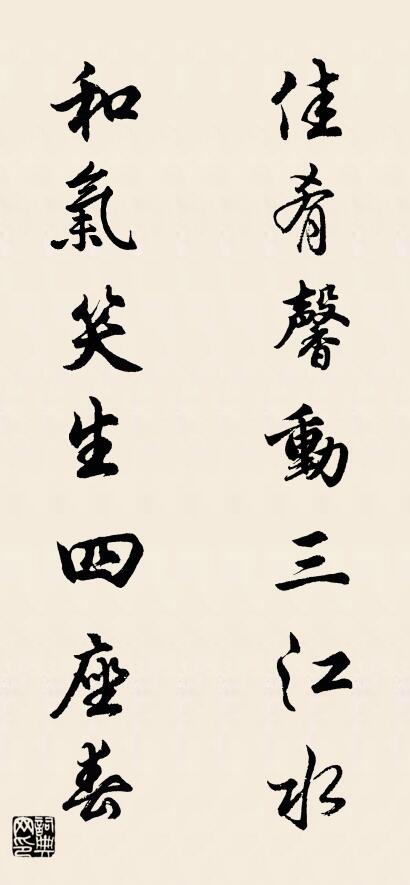 佳肴馨動三江水
和氣笑生四座春
詞典网印